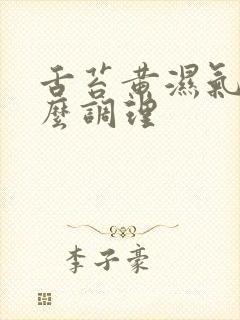 舌苔黄濕氣
麼調理
李子豪